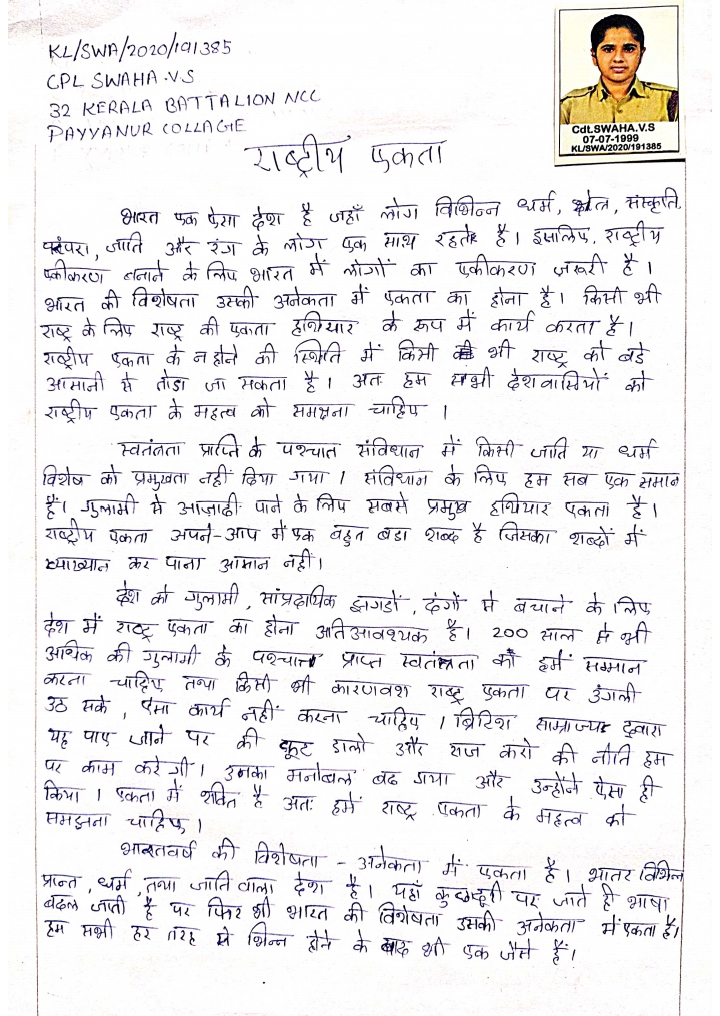 KL/SWA/2020/191385
CPL SWAHA.V.S
32 KERALA BATTALION NCC
PAYYANUR COLLAGE
CdLSWAHA.V.S
07-07-1999
KL/SWA/2020/191385
राष्ट्रीय एकता
भारत एक ऐसा देश है जहाँ लोग विभिन्न धर्म, क्षेत्र, संस्कृति,
परंपरा, जाति और रंग के लोग एक साथ रहते है। इसलिए, राष्ट्रीय
एकीकरण बनाने के लिए भारत में लोगों का एकीकरण जरूरी है।
भारत की विशेषता उसकी अनेकता में एकता का होना है। किसी भी
राष्ट्र के लिए राष्ट्र की एकता हथियार के रूप में कार्य करता है।
राष्ट्रीय एकता के न होने की स्थिति में किसी भी राष्ट्र को बडे
आसानी से तोडा जा सकता है। अतः हम सभी देशवासियों को
राष्ट्रीय एकता के महत्व को समझना चाहिए ।
स्वतंत्रता प्राप्ति के पश्चात संविधान में किसी जाति या धर्म
विशेष को प्रमुखता नहीं दिया गया । संविधान के लिए हम सब एक समान
हैं। गुलामी से आज़ादी पाने के लिए सबसे प्रमुख हथियार एकता है।
राष्ट्रीय एकता अपने-आप में एक बहुत बडा शब्द है जिसका शब्दों में
व्याख्यान कर पाना आसान नहीं।
देश को गुलामी, सांप्रदायिक झगडों, दंगों से बचाने के लिए
देश में राष्ट्र एकता का होना अतिआवश्यक है। 200 साल से भी
अधिक की गुलामी के पश्चात प्राप्त स्वतंत्रता को हमें सम्मान
करना चाहिए तथा किसी भी कारणवश राष्ट्र एकता पर उंगली
उठ सके, ऐसा कार्य नहीं करना चाहिए । ब्रिटिश साम्राज्य द्वारा
यह पाए जाने पर की फूट डालो और राज करो की नीति हम
पर काम करेगी। उनका मनोबल बढ गया और उन्होंने ऐसा ही
किया । एकता में शक्ति है अतः हमें राष्ट्र एकता के महत्व को
समझना चाहिए।
भारतवर्ष की विशेषता - अनेकता में एकता है। भातर विभिन्न
प्रान्त, धर्म, तथा जाति वाला देश है। यहाँ कुछ दूरी पर जाते ही भाषा
बदल जाती है पर फिर भी भारत की विशेषता उसकी अनेकता में एकता है।
हम सभी हर तरह से भिन्न होने के बाद भी एक जैसे हैं।